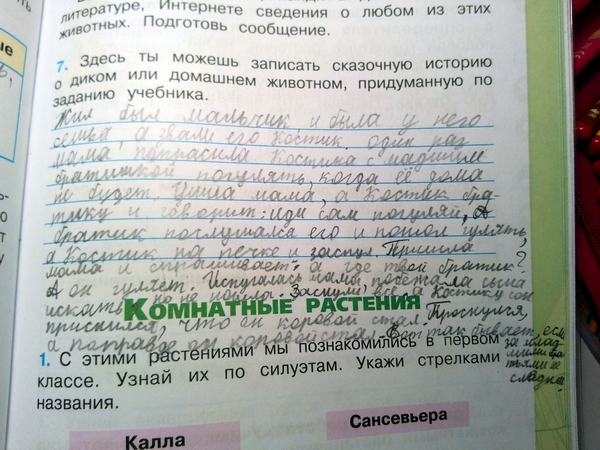 литературе, Интернете сведения о любом из этих
животных. Подготовь сообщение.
7. Здесь ты можешь записать сказочную историю
о диком или домашнем животном, придуманную по
заданию учебника.
Жил был мальчик и была у него
семья, а звали его Костик, один раз
мама попрасила Костика с младшим
братишкой погулять, когда её дома
не будет. Ушла мама, а Костик бра-
тику и говорит: иди сам погуляй, А
братик послушался его и пошол гулять,
а Костик на печке и заснул. Пришла
мама и спрашивает: а где твой братик?
А он гуляет. Испугалась мама, побежала сына
искать, но не нашла. Заснули все, а Костику сон
КОМНАТНЫЕ РАСТЕНИЯ
приснился, что он коровой стал. Проснулся,
а поправде он коровой стал. Вот так бывает, если
за млад-
шими бра-
тьями не
следить.
1. С этими растениями мы познакомились в первом
классе. Узнай их по силуэтам. Укажи стрелками
названия.
Калла
Сансевьера